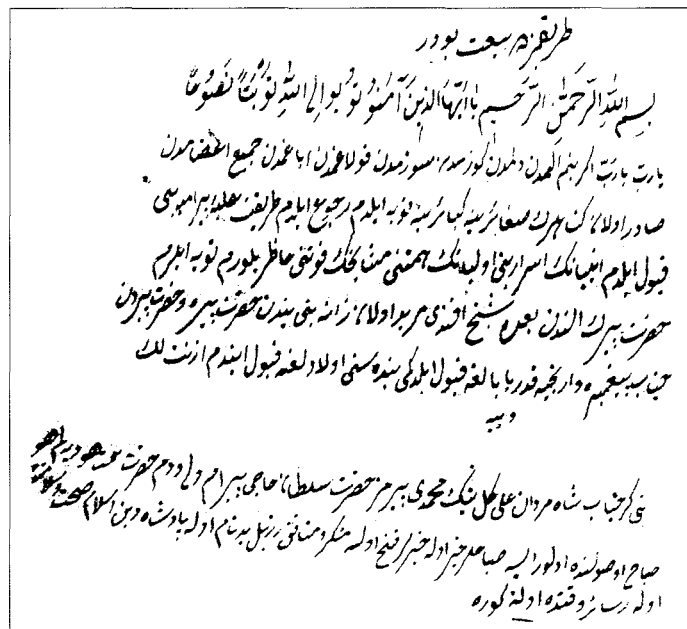 طريقمزه بيعت بودر
بِسْمِ اللهِ الرَّحْمٰنِ الرَّحِيم يا اَيُّهَا الَّذِينَ آمَنُو تُوبُوا اِلَى اللهِ تَوْبَةً نَصُوحًا
يارب يارب اكر بنم المدن دلمدن كوزمدن سوزمدن قولاغمدن اياغمدن جميع اعضامدن
صادر اولان كناهلرك صغائرينه كبائرينه توبه ايلدم رجوع ايلدم طريقت عليه بيراميه يى
قبول ايلدم انبيانك اسرارينى اوليانك همتنى حاظر بلورم توبه ايلرم
حضرت پيرك الندن بعده شيخ افندى مريد اولان ذاته بنى سندن حضرت پيره و حضرت پيردن
جناب پيغمبره وارنجيه قدر بابالغه قبول ايلدكى بنده سنى اولادلغه قبول ايتدم
ديه
جناب شاه مردان على محمدى پيرمز حضرت سلطان حاجى بيرام ولى حضرت
صباح اولور ايسه صباحلر خير اوله خيرلر فتح اوله منكر و منافق اوله پادشاه دين اسلام
اوله وقتده اوله كوره